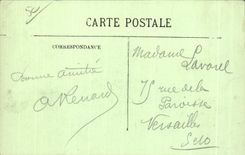 CARTE POSTALE
CORRESPONDANCE
Bonne amitié
A Renard
Madame
Lavorel
75 rue de la
Paroisse
Versailles
S et O